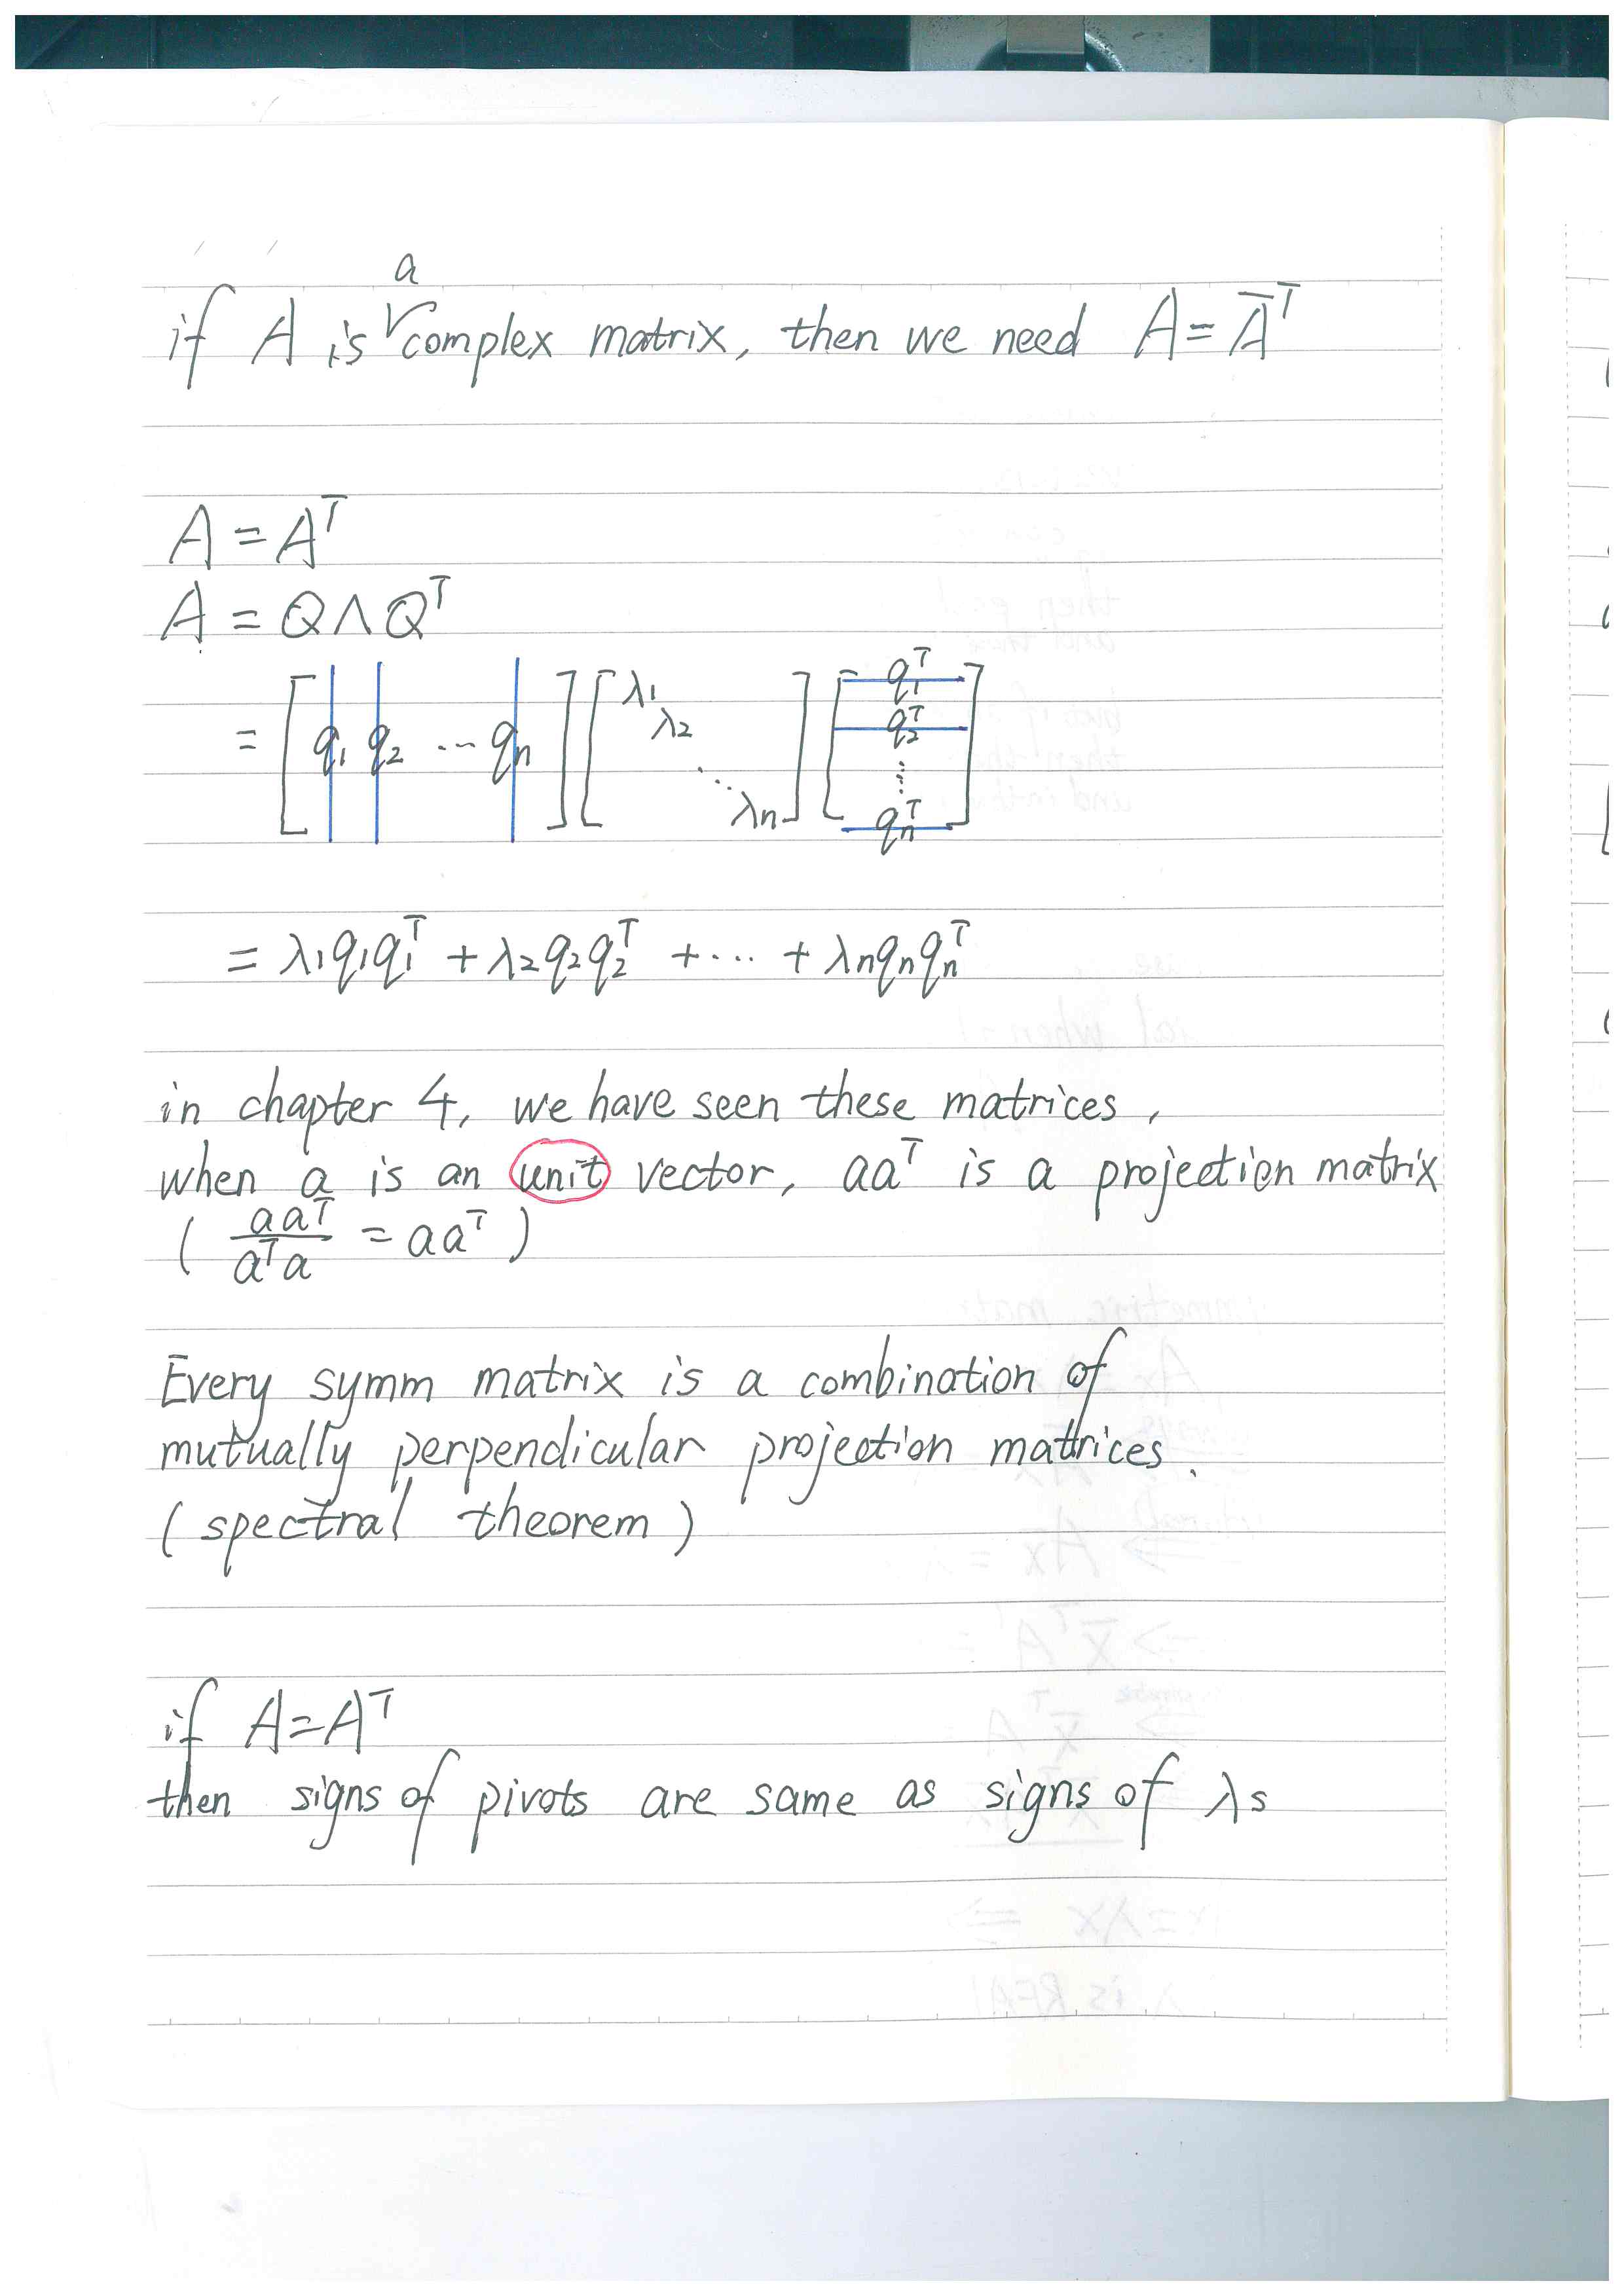 if A is a complex matrix, then we need A = A̅ᵀ
A = Aᵀ
A = QΛQᵀ
= [q₁ q₂ ⋯ qₙ] [λ₁ λ₂ ⋱ λₙ] [q₁ᵀ q₂ᵀ ⋮ qₙᵀ]
= λ₁q₁q₁ᵀ + λ₂q₂q₂ᵀ + ⋯ + λₙqₙqₙᵀ
in chapter 4, we have seen these matrices,
when a is an unit vector, aaᵀ is a projection matrix
( aaᵀ / aᵀa = aaᵀ )
Every symm matrix is a combination of
mutually perpendicular projection matrices.
(spectral theorem)
if A=Aᵀ
then signs of pivots are same as signs of λs